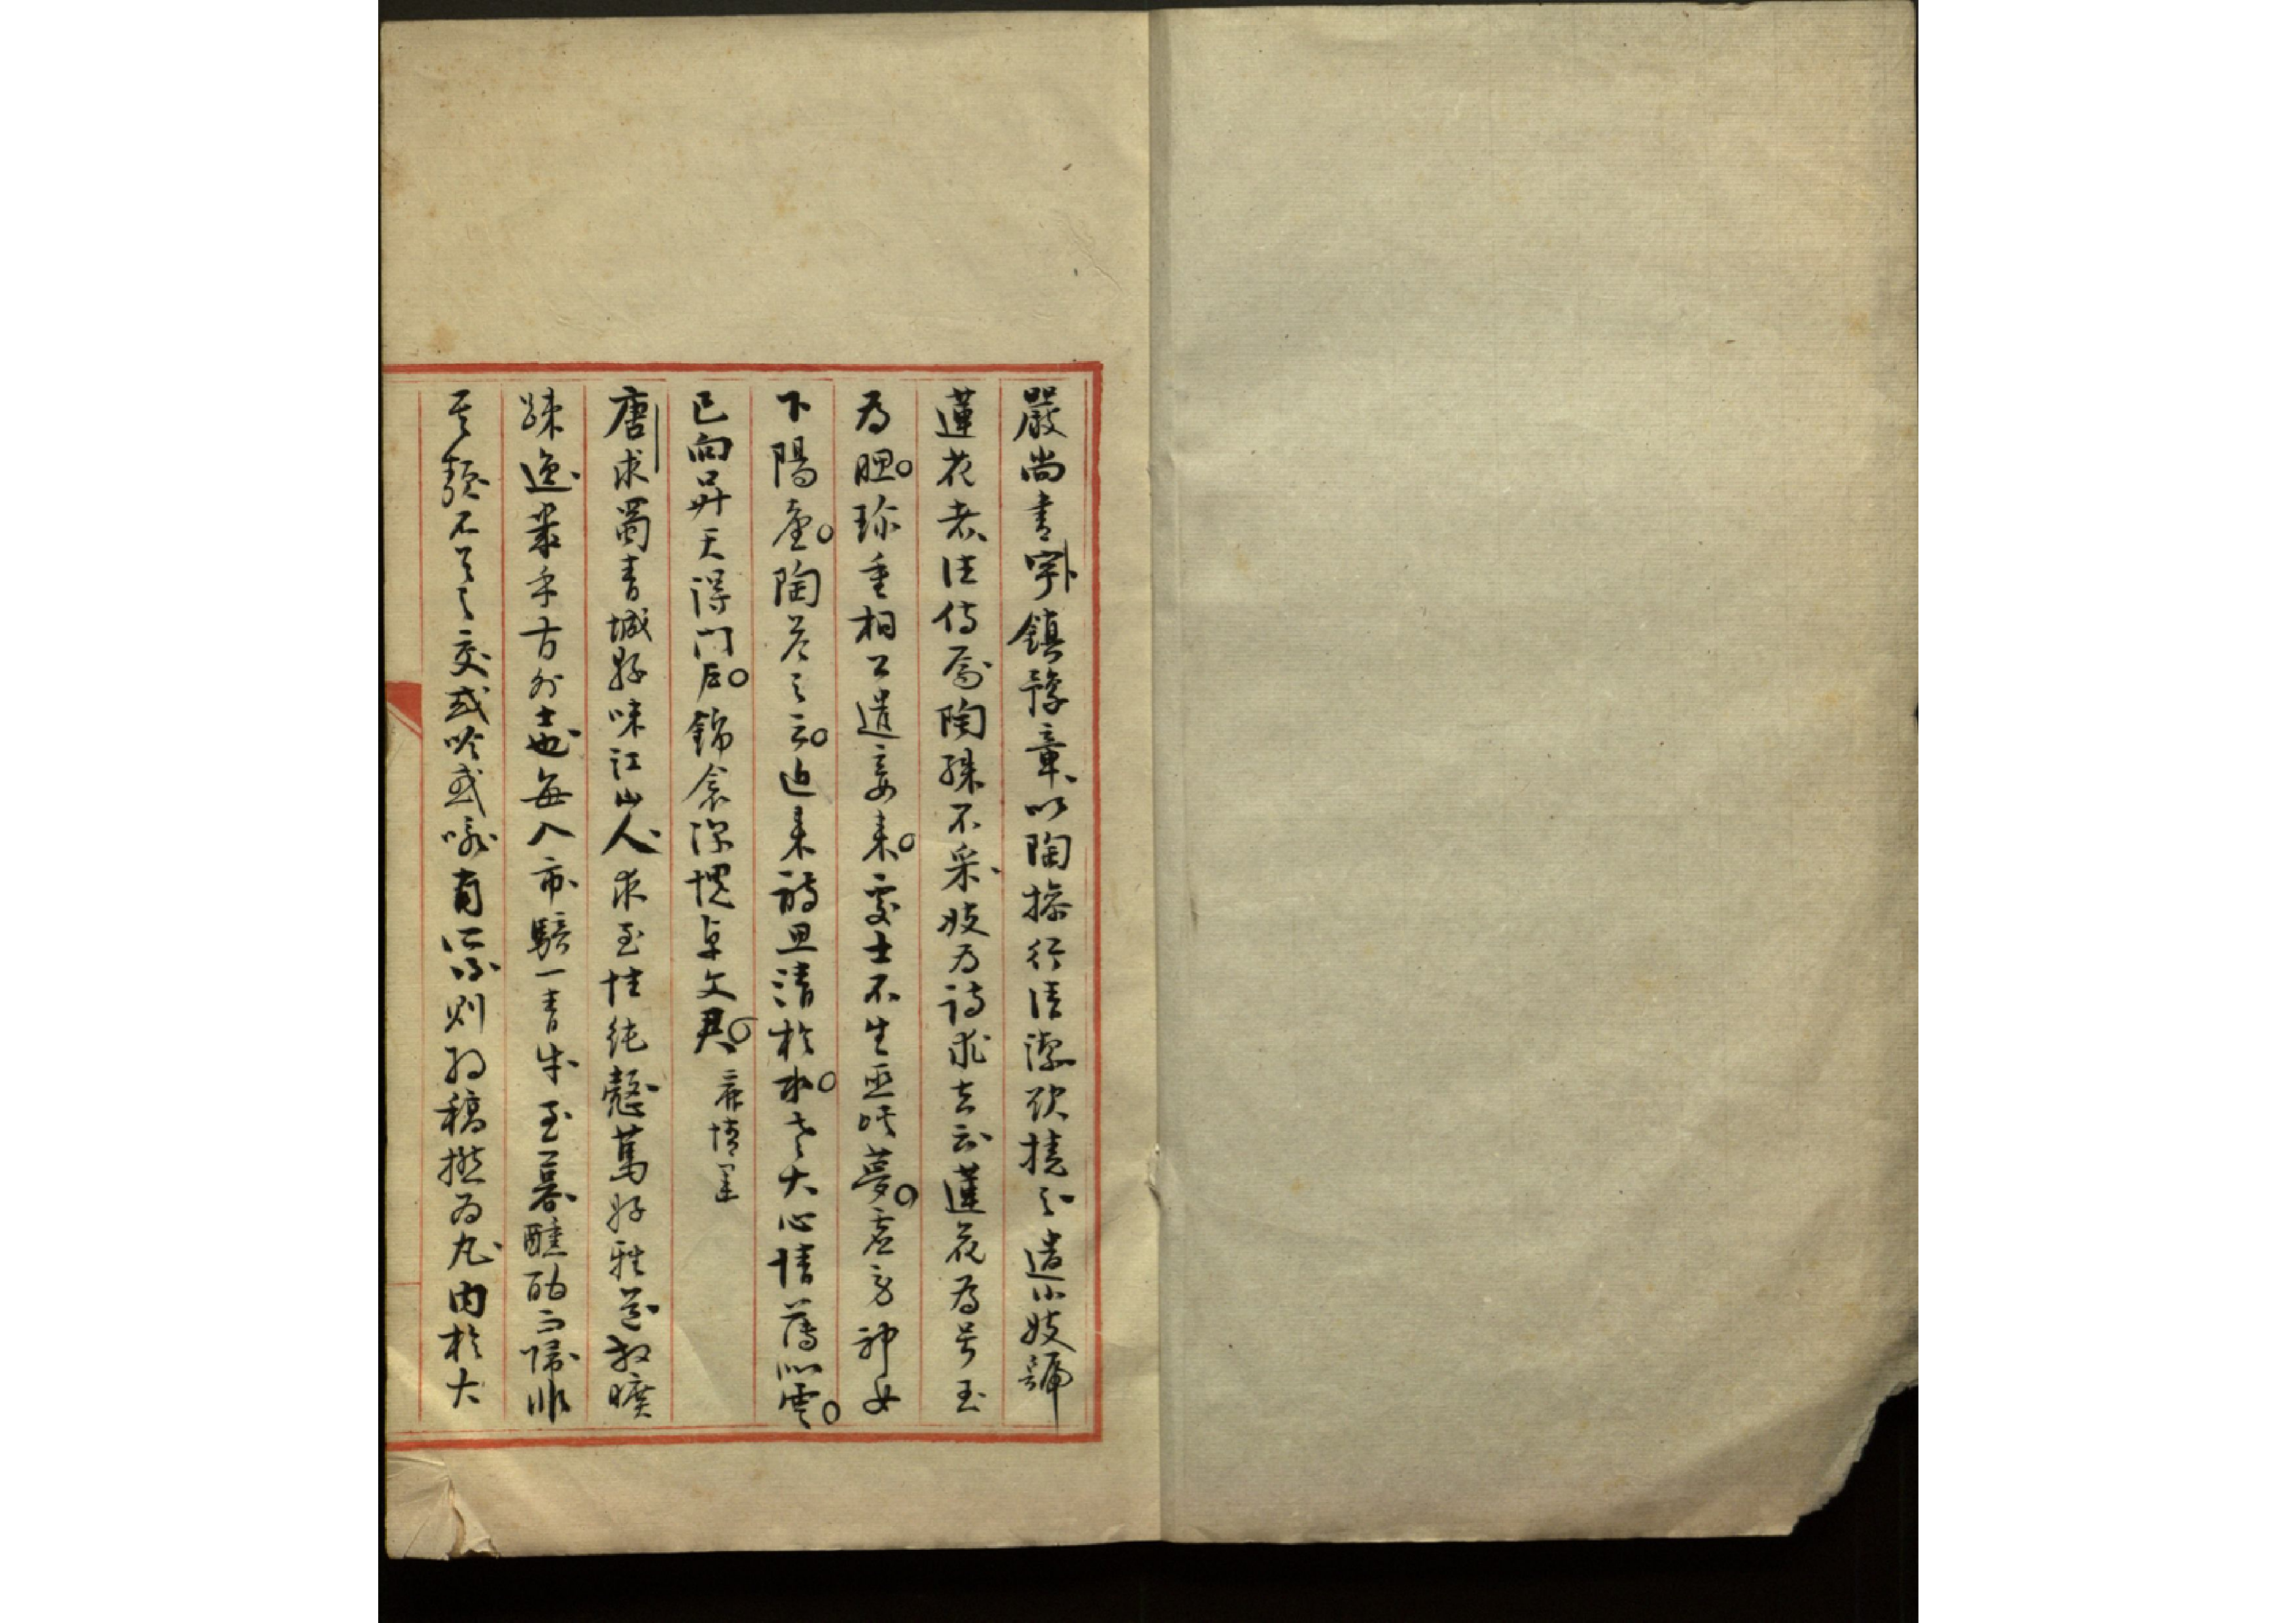 嚴尚書宇鎮豫章以陶操行清潔欲撓之遣小妓號
蓮花者往侍焉陶殊不采妓為詩求去云蓮花為号玉
為腮珍重相公遣妾來處士不生巫峽夢虛勞神女
下陽臺陶答之云近來詩思清於水老大心情薄似雲
已向昇天得門戶錦衾深愧卓文君
唐求蜀青城縣味江山人求至性純慤篤好雅道放曠
疎逸出乎方外士也每入市騎一青牛至暮醺酣而歸非
其類不與之交或吟或咏有所得則将稿撚為丸内於大